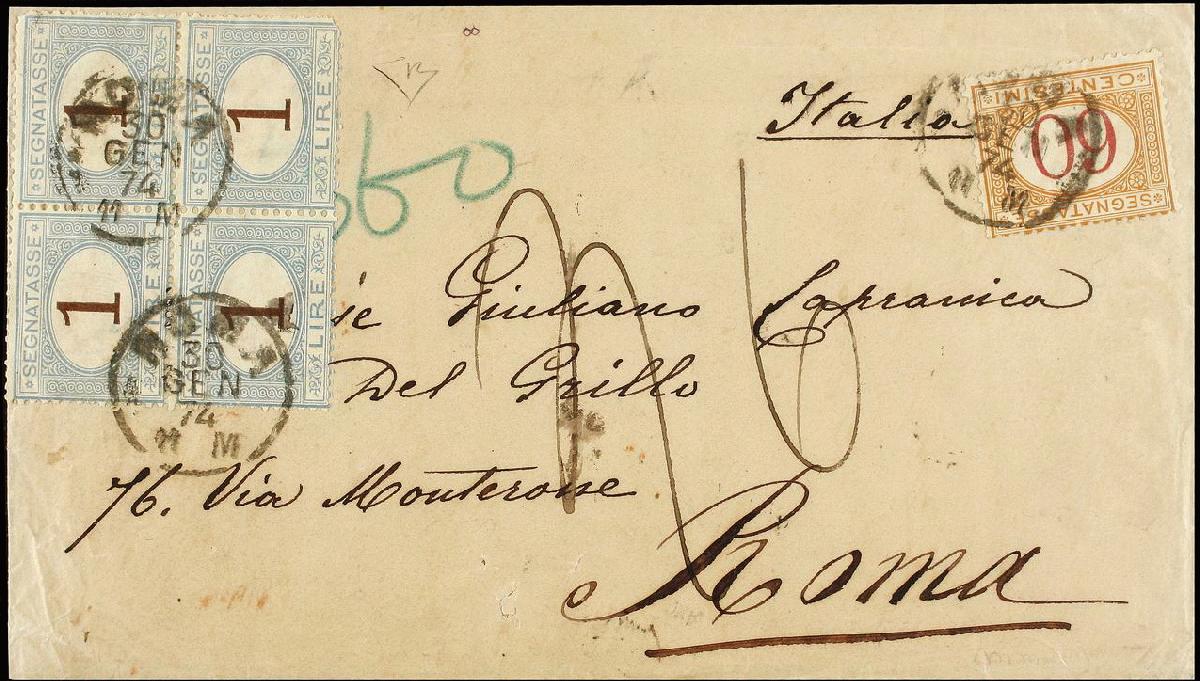 SEGNATASSE 1 LIRE
SEGNATASSE 1 LIRE
SEGNATASSE 1 LIRE
SEGNATASSE 1 LIRE
30
GEN
74
11 M
ROMA
30
GEN
74
11 M
60
Italia
CENTESIMI
60
SEGNATAS
11 M
Giuliano Capranica
Del Grillo
76. Via Monterone
Roma